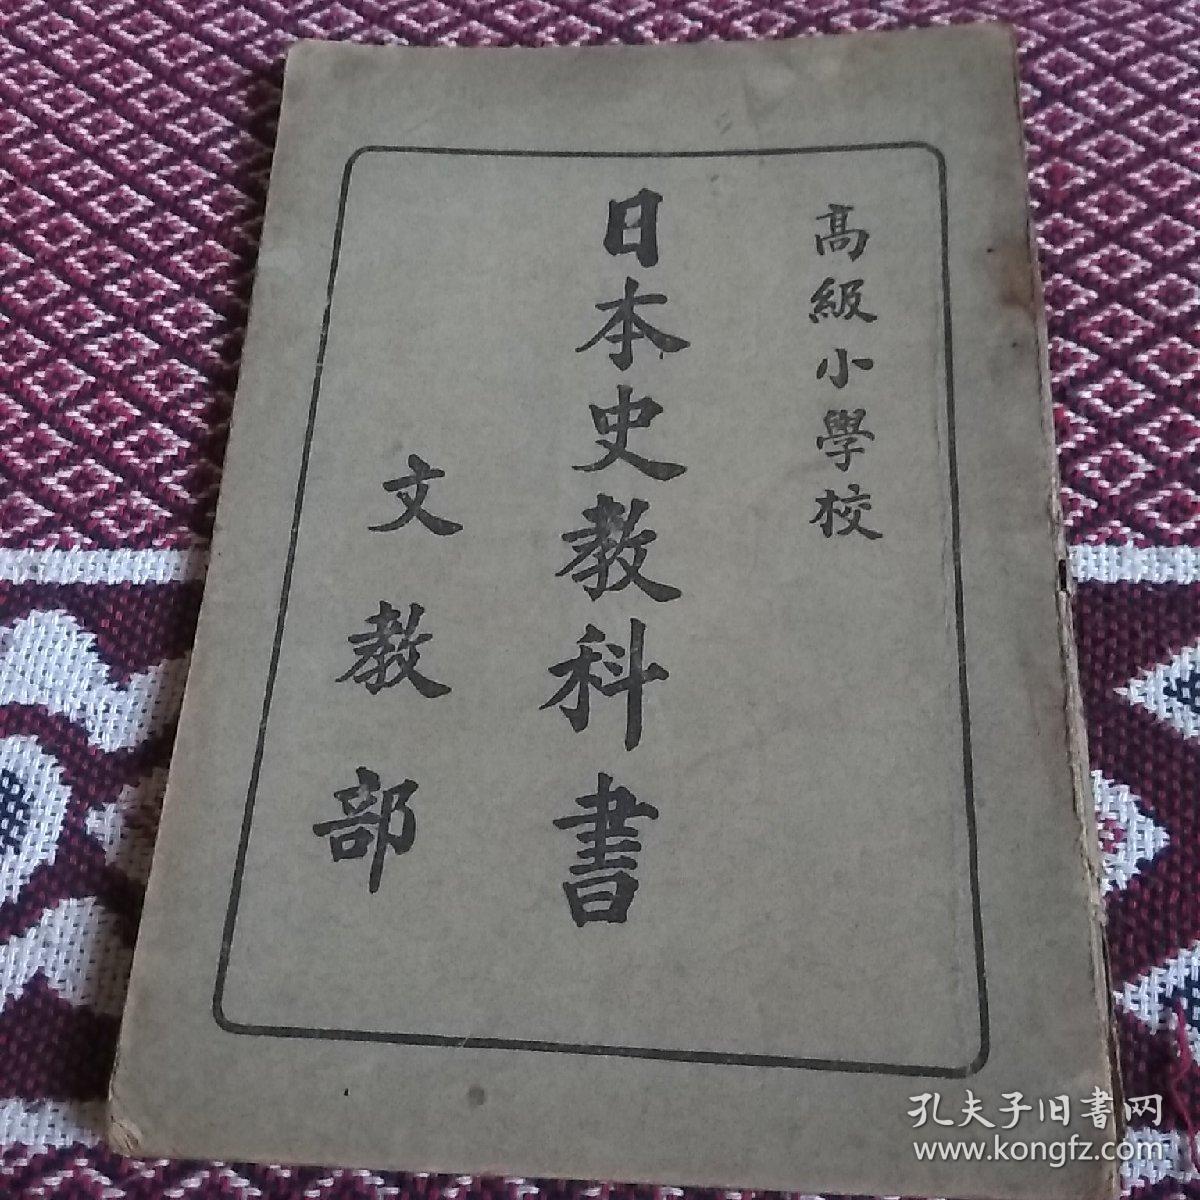 高級小學校
日本史教科書
文教部
孔夫子旧書网
www.kongfz.com